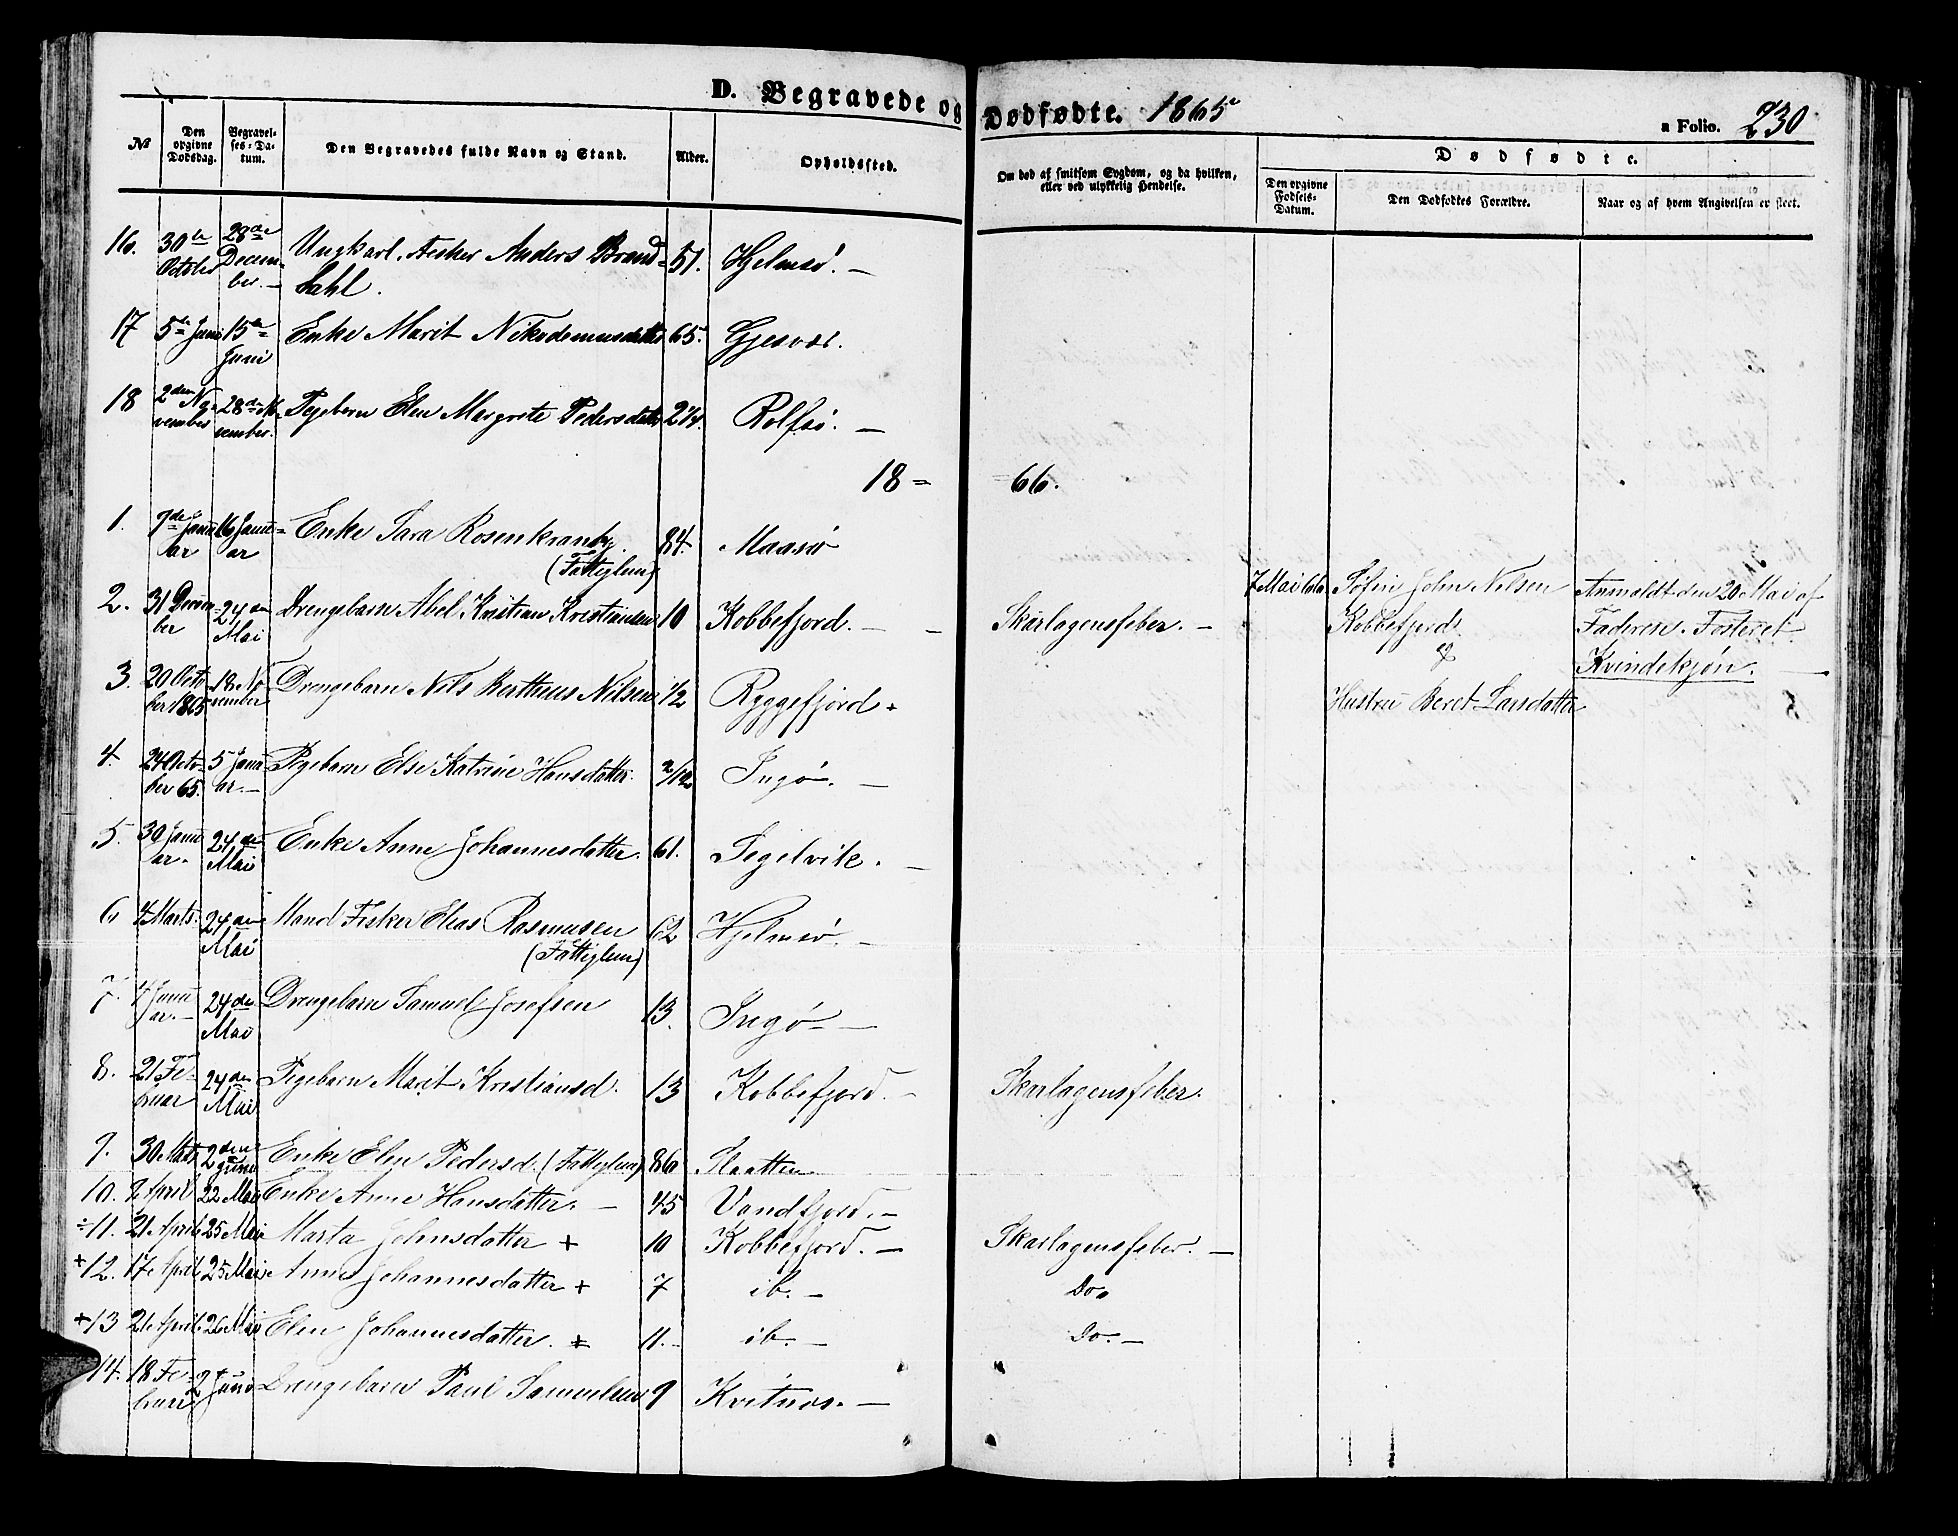 D. Begravede og Dødfødte. 1865
a Folio. 230
No
Den opgivne Dødsdag.
Begravelses-Datum.
Den Begravedes fulde Navn og Stand.
Alder.
Opholdssted.
Om død af smitsom Sygdom, og da hvilken, eller ved ulykkelig Hendelse.
Dødfødte.
Den opgivne Fødsels-Datum.
Den Dødfødtes Forældre.
Naar og af hvem Angivelsen er skeet.
16. 30te October 28de December. Ungkarl Anders Brand= 51. Hjelmsø.
dahl.
17 5te Juni 15de Juni Enke Marit Nikodemusdatter 65. Gjesvær.
18 2den November 28de November. Pigebarn Elen Margrete Pedersdatter Rolfsø.
18= =66.
1. 7de Januar 16 Januar Enke Sara Rosenkrantz 84. Maasø
(Fattiglem)
2. 31 December 24de Mai Drengebarn Abel Kristian Kristiansen 10 Kobbefjord. Skarlagensfeber. 7 Mai 66 Søfin John Nilsen Anmeldt den 20 Mai af
Kobbefjord Faderen. Fosteret
og Kvindekjøn.
Hustru Beret Larsdatter
3. 20 October 1865 18 November Drengebarn Nils Bertheus Nilsen 1/2 Ryggefjord
4. 24 October 65. 5 Januar. Pigebarn Else Katrine Hansdatter. 2/12 Ingø.
5. 30 Januar. 24de Mai Enke Anne Johannesdatter. 61. Segelvik.
6 4 Marts. 24de Mai Mand Fisker Elias Rasmusen 62 Hjelmsø.
(Fattiglem)
7. 4 Januar. 24de Mai Drengebarn Samuel Josefsen 13. Ingø
8. 21 Februar 24de Mai Pigebarn Marit Kristiansd. 13 Kobbefjord. Skarlagensfeber.
9. 30 Marts 2den Enke Elen Pedersd. (Fattiglem) 86 Slaatten
10. 2 April 22 Mai Enke Anne Hansdatter. 45 Vandfjord.
÷11. 21 April 25 Mai Marta Johnsdatter + 10 Kobbefjord. Skarlagensfeber.
+12. 17 April 25 Mai Anne Johannesdatter + 7 ib. Do.
+13 21 April 26 Mai Elen Johannesdatter. + 11. ib. Do.
14. 18 Februar 2 Juni Drengebarn Paul Samuelsen 9 Kvitnæs.